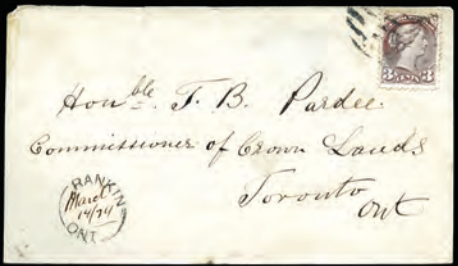 3 CENTS 3
Honble. T. B. Pardee.
Commissioner of Crown Lands
Toronto
Ont
RANKIN
March
14/74
ONT